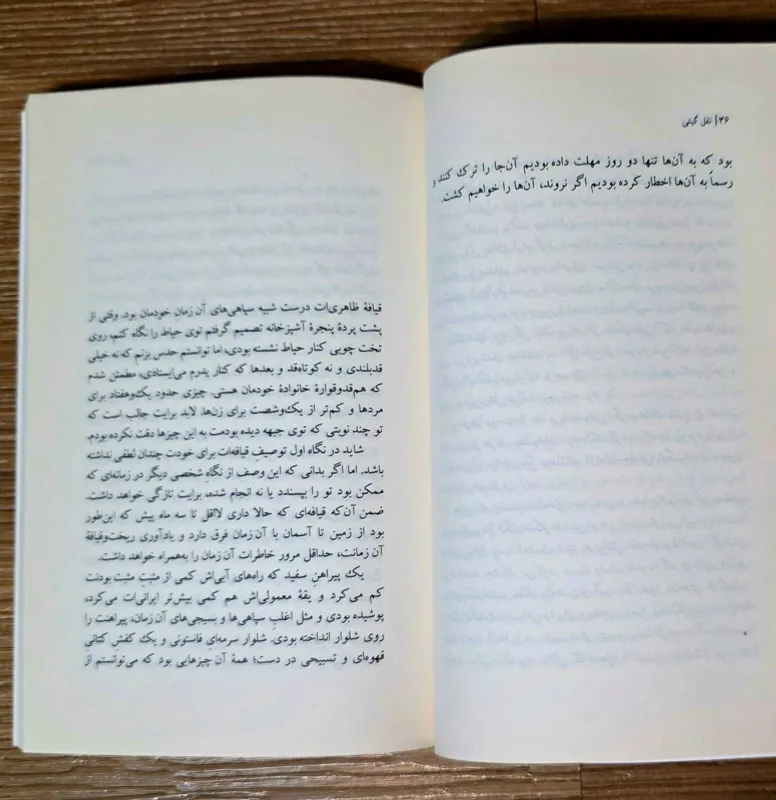 ۳۶| نقل گیتی
بود که به آن‌ها تنها دو روز مهلت داده بودیم آن‌جا را ترک کنند و
رسماً به آن‌ها اخطار کرده بودیم اگر نروند، آن‌ها را خواهیم کشت.
قیافهٔ ظاهری‌ات درست شبیه سپاهی‌های آن زمان خودمان بود. وقتی از
پشت پردهٔ پنجرهٔ آشپزخانه تصمیم گرفتم توی حیاط را نگاه کنم، روی
تخت چوبی کنار حیاط نشسته بودی، اما توانستم حدس بزنم که نه خیلی
قدبلندی و نه کوتاه‌قد و بعدها که کنار پدرم می‌ایستادی، مطمئن شدم
که هم‌قدوقوارهٔ خانوادهٔ خودمان هستی. چیزی حدود یک‌وهفتاد برای
مردها و کم‌تر از یک‌وشصت برای زن‌ها. لابد برایت جالب است که
تو چند نوبتی که توی جبهه دیده بودمت به این چیزها دقت نکرده بودم.
شاید در نگاه اول توصیفِ قیافه‌ات برای خودت چندان لطفی نداشته
باشد. اما اگر بدانی که این وصف از نگاهِ شخصی دیگر در زمانه‌ای که
ممکن بود تو را بپسندد یا نه انجام شده، برایت تازگی خواهد داشت.
ضمن آن‌که قیافه‌ای که حالا داری لااقل تا سه ماه پیش که این‌طور
بود از زمین تا آسمان با آن زمان فرق دارد و یادآوری ریخت‌وقیافهٔ
آن زمانت، حداقل مرور خاطرات آن زمان را به‌همراه خواهد داشت.
یک پیراهنِ سفید که راه‌های آبی‌اش کمی از مثبتِ مثبت بودنت
کم می‌کرد و یقهٔ معمولی‌اش هم کمی بیش‌تر ایرانی‌ات می‌کرد،
پوشیده بودی و مثل اغلبِ سپاهی‌ها و بسیجی‌های آن زمان، پیراهنت را
روی شلوار انداخته بودی. شلوار سرمه‌ایِ فاستونی و یک کفشِ کتانی
قهوه‌ای و تسبیحی در دست؛ همهٔ آن چیزهایی بود که می‌توانستم از